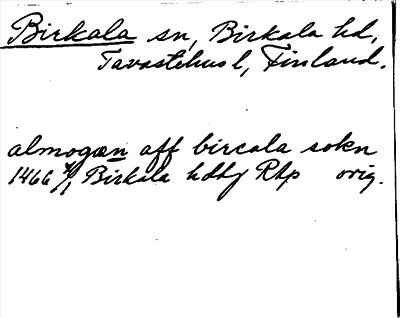 Birkala sn, Birkala hd,
Tavastehus l, Finland.
almogæn aff bircala sokn
1466 4/1 Birkala hdtg RAp orig.